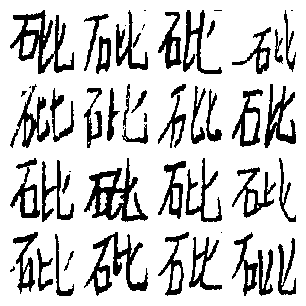 砒砒砒砒
砒砒砒砒
砒砒砒砒
砒砒砒砒